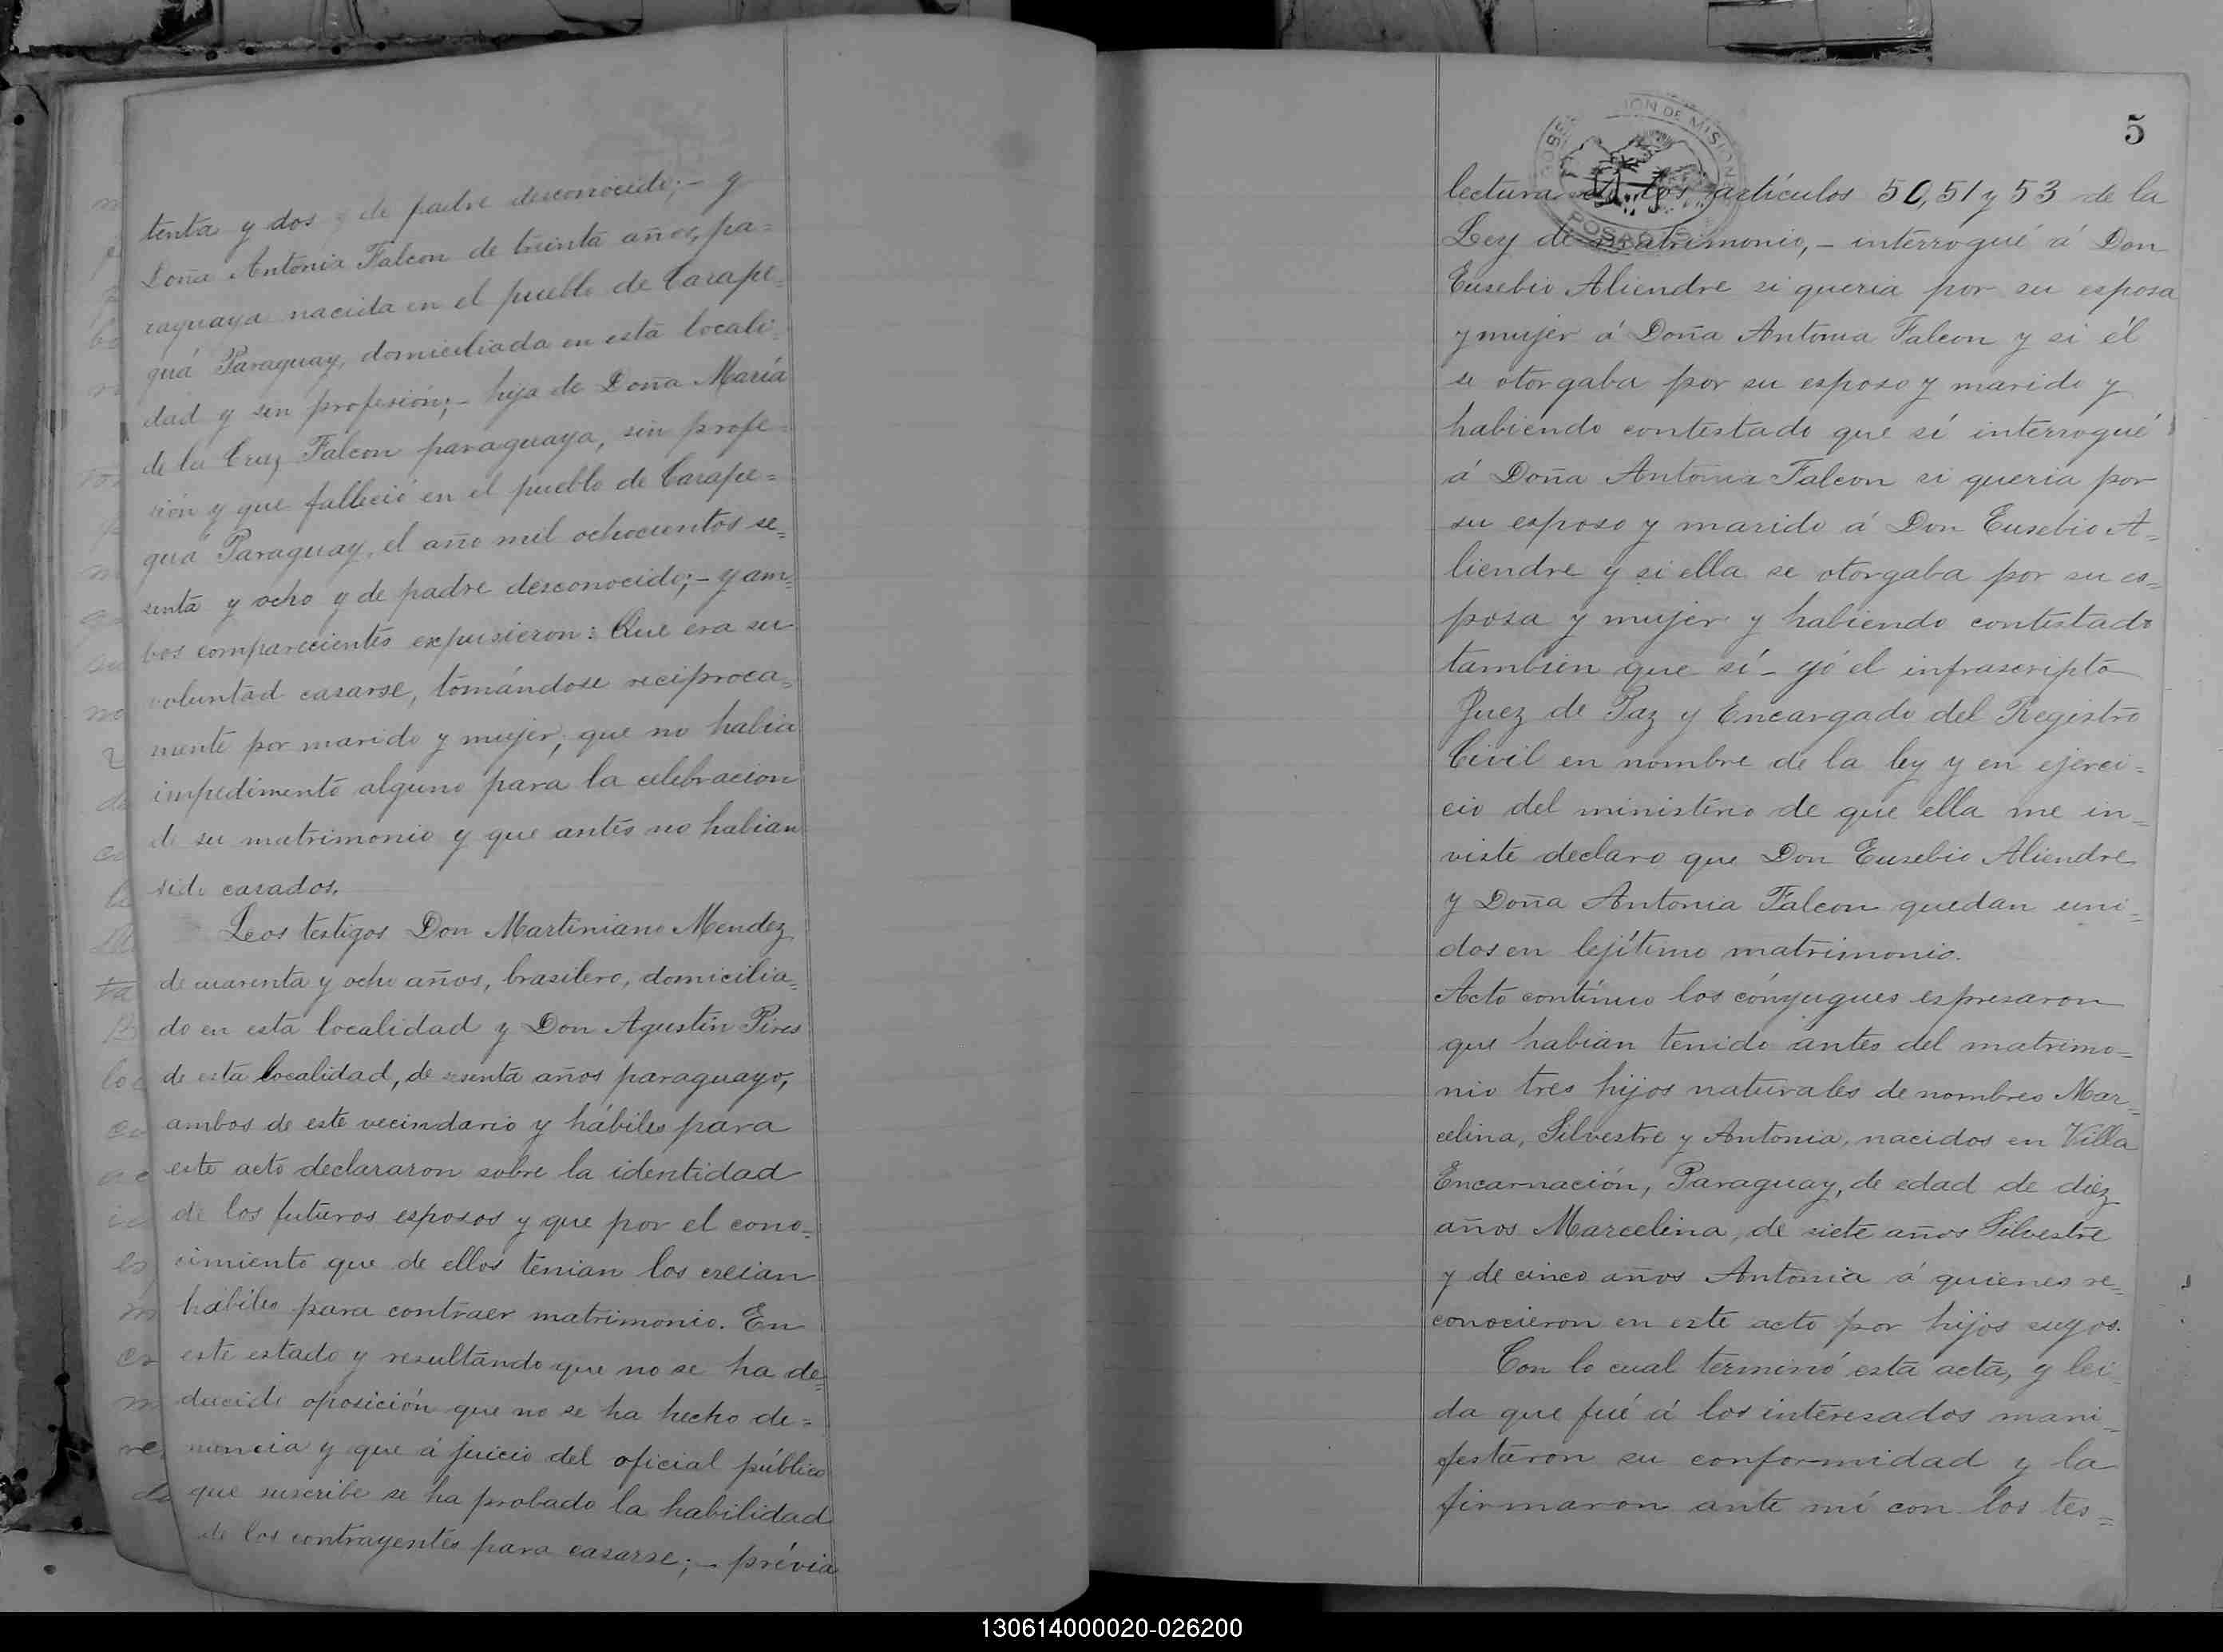 tenta y dos y de padre desconocido; - y
Doña Antonia Falcon de treinta años, pa=
raguaya nacida en el pueblo de Carape=
guá Paraguay, domiciliada en esta locali=
dad y sin profesión; - hija de Doña María
de la Cruz Falcon paraguaya, sin profe=
sión y que falleció en el pueblo de Carape=
guá Paraguay, el año mil ochocientos se=
senta y ocho y de padre desconocido; - y am=
bos comparecientes expusieron: Que era su
voluntad casarse, tomándose reciproca=
mente por marido y mujer, que no habia
impedimento alguno para la celebracion
de su matrimonio y que antes no habian
sido casados.
Los testigos Don Martiniano Mendez
de cuarenta y ocho años, brasilero, domicilia=
do en esta localidad y Don Agustin Pires
de esta localidad, de sesenta años paraguayo,
ambos de este vecindario y hábiles para
este acto declararon sobre la identidad
de los futuros esposos y que por el cono=
cimiento que de ellos tenian los creian
hábiles para contraer matrimonio. En
este estado y resultando que no se ha de=
ducido oposición que no se ha hecho de=
nuncia y que á juicio del oficial público
que suscribe se ha probado la habilidad
de los contrayentes para casarse; - prévia
5
GOBERNACION DE MISIONES
POSADAS
lectura de los artículos 50, 51 y 53 de la
Ley de matrimonio, - interrogué á Don
Eusebio Aliendre si queria por su esposa
y mujer á Doña Antonia Falcon y si él
se otorgaba por su esposo y marido y
habiendo contestado que sí interrogué
á Doña Antonia Falcon si queria por
su esposo y marido á Don Eusebio A=
liendre y si ella se otorgaba por su es=
posa y mujer y habiendo contestado
tambien que sí - yó el infrascripto
Juez de Paz y Encargado del Registro
Civil en nombre de la ley y en ejerci=
cio del ministerio de que ella me in=
viste declaro que Don Eusebio Aliendre
y Doña Antonia Falcon quedan uni=
dos en lejítimo matrimonio.
Acto contínuo los cónyugues espresaron
que habian tenido antes del matrimo=
nio tres hijos naturales de nombres Mar=
celina, Silvestre y Antonia, nacidos en Villa
Encarnación, Paraguay, de edad de diez
años Marcelina, de siete años Silvestre
y de cinco años Antonia á quienes re=
conocieron en este acto por hijos suyos.
Con lo cual terminó esta acta, y lei=
da que fué á los interesados mani=
festaron su conformidad y la
firmaron ante mí con los tes=
130614000020-026200